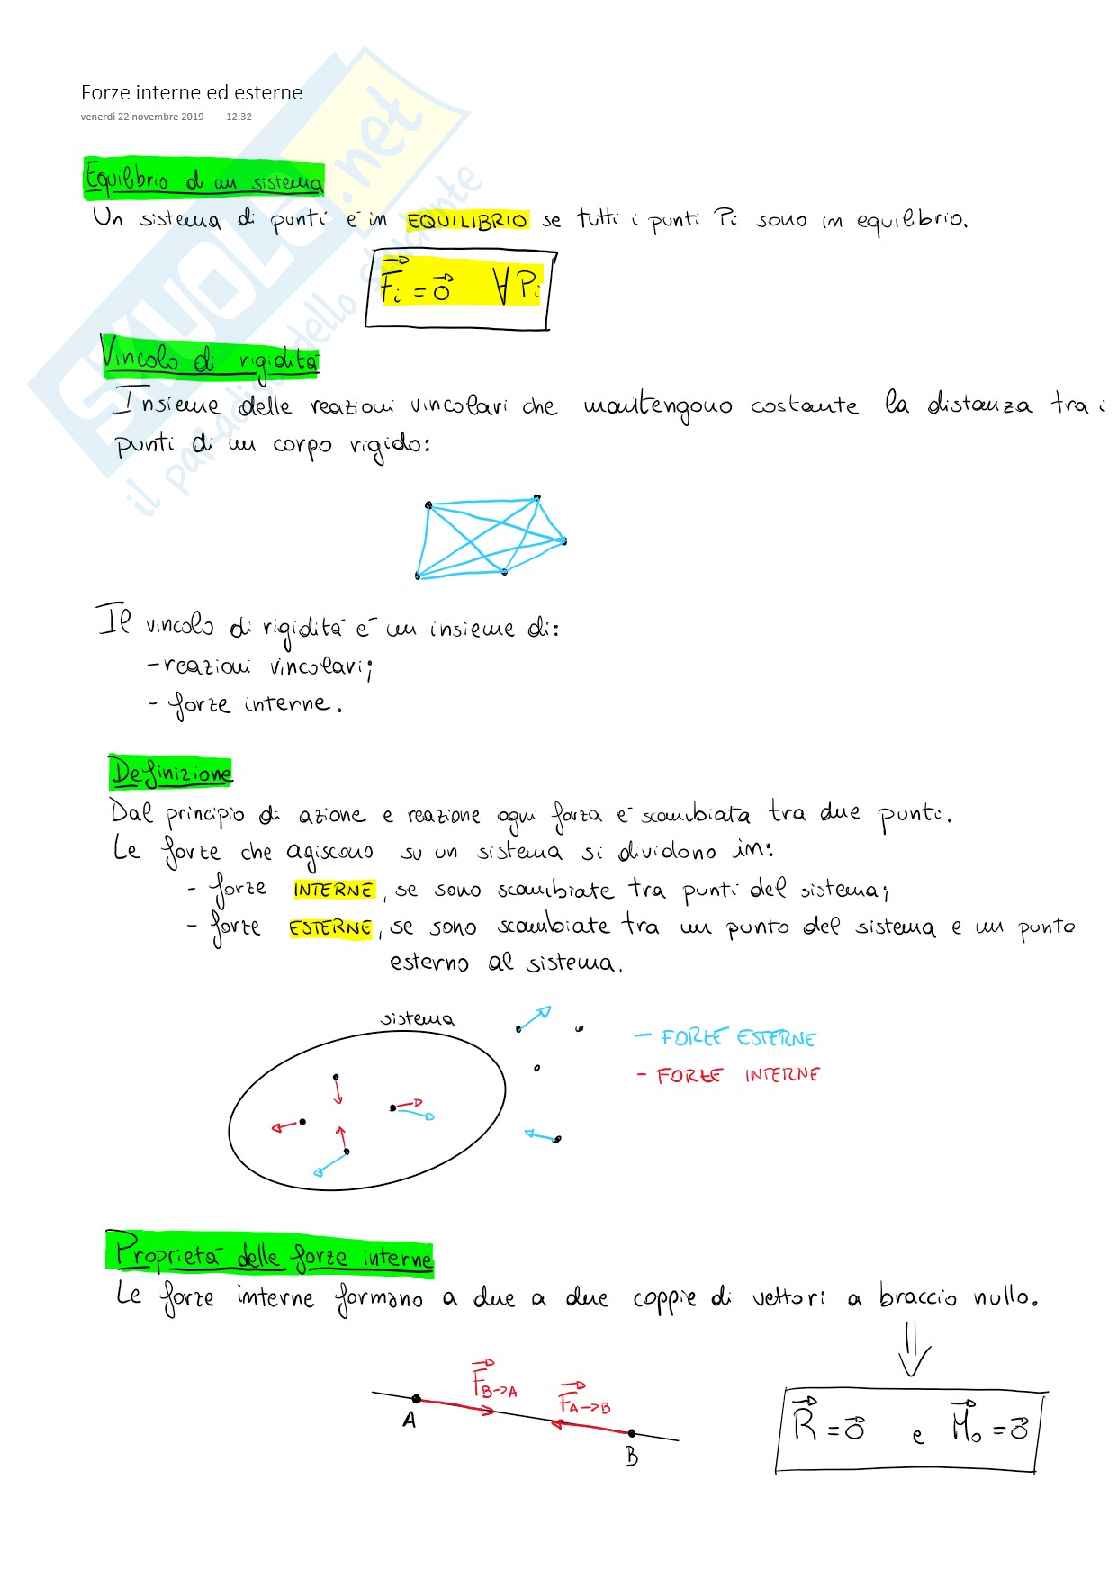 Forze interne ed esterne
venerdì 22 novembre 2019 12:32
Equilibrio di un sistema
Un sistema di punti è in EQUILIBRIO se tutti i punti Pi sono in equilibrio.
F⃗i = 0⃗ ∀ Pi
Vincolo di rigidità
Insieme delle reazioni vincolari che mantengono costante la distanza tra i
punti di un corpo rigido:
Il vincolo di rigidità è un insieme di:
- reazioni vincolari;
- forze interne.
Definizione
Dal principio di azione e reazione ogni forza è scambiata tra due punti.
Le forze che agiscono su un sistema si dividono in:
- forze INTERNE, se sono scambiate tra punti del sistema;
- forze ESTERNE, se sono scambiate tra un punto del sistema e un punto
esterno al sistema.
sistema
- FORZE ESTERNE
- FORZE INTERNE
Proprietà delle forze interne
Le forze interne formano a due a due coppie di vettori a braccio nullo.
F⃗B->A
F⃗A->B
A
B
R⃗ = 0⃗ e M⃗o = 0⃗
SKUOLA.net
il paradiso dello studente